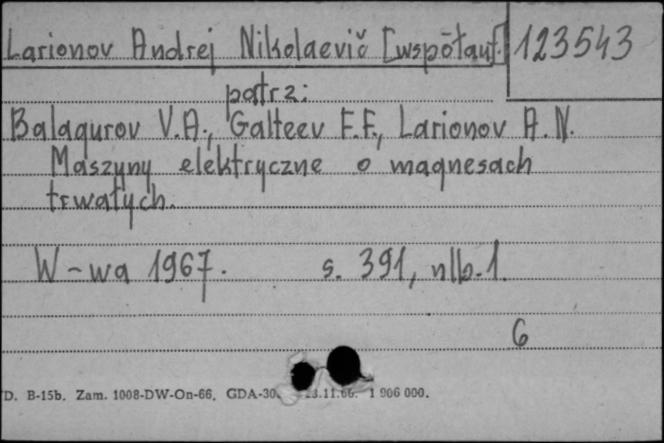 Larionov Andrej Nikolaevič [współaut.] 123543
patrz:
Balagurov V.A., Galteev F.F., Larionov A.N.
Maszyny elektryczne o magnesach
trwałych.
W-wa 1967. s. 391, nlb.1.
6
D. B-15b. Zam. 1008-DW-On-66. GDA-30 .11.66. 1 906 000.